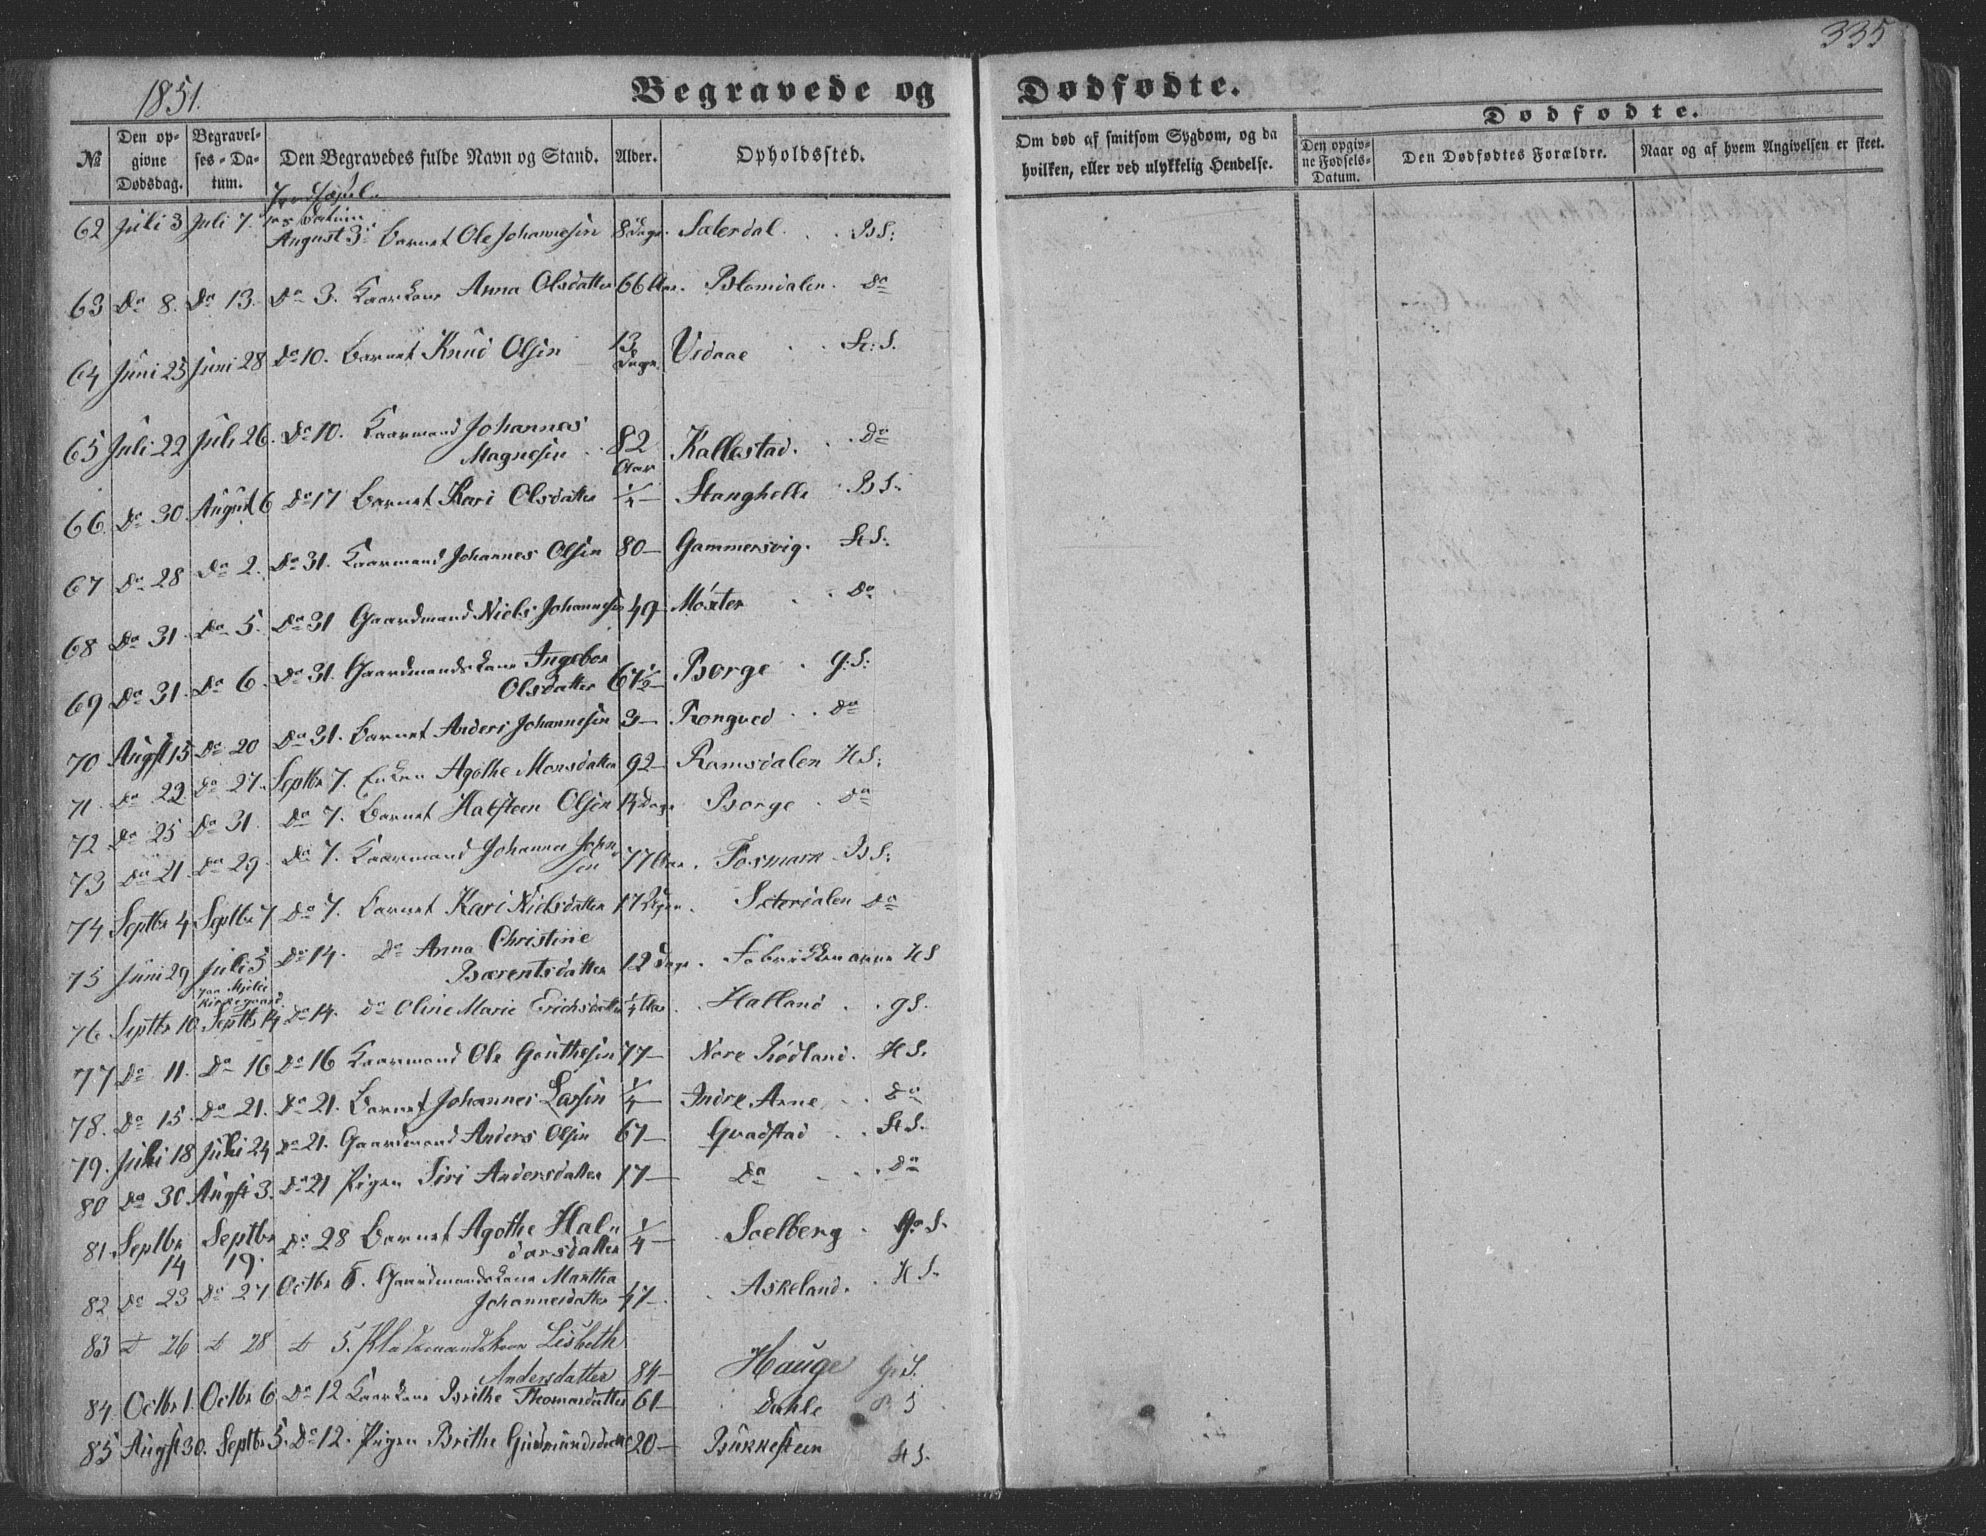 335
1851.
Begravede og Dødfødte.
Dødfødte.
№ Den opgivne Dødsdag. Begravelses-Datum. Den Begravedes fulde Navn og Stand. Alder. Opholdssted. Om død af smitsom Sygdom, og da hvilken, eller ved ulykkelig Hendelse. Den opgivne Fødsels-Datum. Den Dødfødtes Forældre. Naar og af hvem Angivelsen er skeet.
Datum
62 Juli 3 Juli 7. August 3 Barnet Ole Johannesen 8 Dage. Sæterdal. BS:
63 Do 8. Do 13. Do 3. Kaarkone Anna Olsdatter 66 Aar. Blomdalen. Do
64 Juni 23 Juni 28 Do 10. Barnet Knud Olsen 13 Dage Vidaae St: S.
65 Juli 22 Juli 26. Do 10. Kaarmand Johannes
Magnesen 82 Aar Kallestad. Do
66 Do 30 August 6 Do 17 Barnet Kari Olsdatter 1/4 — Stanghelle BS.
67 Do 28 Do 2. Do 31. Kaarmand Johannes Olsen 80 — Gammersvig. St S.
68 Do 31. Do 5. Do 31 Gaardmand Niels Johannesen 49 Møster Do
69 Do 31. Do 6. Do 31. Gaardmandskone Ingebor
Olsdatter 67 1/2 — Borge G: S:
70 Augst 15 Do 20 Do 31. Barnet Anders Johannesen 3 — Rongved Do
71 Do 22 Do 27. Septbr 7. Enken Agothe Monsdatter 92 — Romsdalen HS:
72 Do 25 Do 31. Do 7. Barnet Halsteen Olsen 14 Dage Borge Do
73 Do 21. Do 29. Do 7. Kaarmand Johannes
sen 77 Aar. Fosmark BS:
74 Septbr 4 Septbr 7 Do 7. Barnet Kari Nielsdatter 17 Sæterdalen Do
75 Juni 29 Juli 5 Do 14. Do Anna Christine
Kirkegaard. Bærentsdatter 12 Dage. HS
76 Septbr 10 Septbr 14 Do 14. Do Oline Marie Erichsdatter 1/4 Aar. Halland gS.
77 Do 11. Do 16 Do 16 Kaarmand Ole Gouthesen 77 — Nore Rødland. HS.
78. Do 15. Do 21. Do 21. Barnet Johannes Larsen 1/4 — Indre Arne Do
79. Juli 18 Juli 24 Do 21. Gaardmand Anders Olsen 67 — Gvadstad St S.
80 Do 30 Augst 3. Do 21 Pigen Siri Andersdatter 17 — Do Do
81 Septbr 14 Septbr 19. Do 28 Barnet Agothe Hal-
darsdatter 1/4 — Soelberg G: S.
82 Do 23 Do 27 Octbr 5. Gaardmandskone Martha
Johannesdatter 47 — Askeland. HS.
83 D 26 D 28 D 5. Pladsmandskone Lisbeth
Andersdatter 84 — Hauge G: S.
84. Octbr 1. Octbr 6. Do 12 Kaarkone Brithe Thomasdatter 61 — Dahle B S
85 Augst 30. Septbr 5. Do 12. Pigen Brithe Gudmundsdatter 20 — Bukkesteen St S.